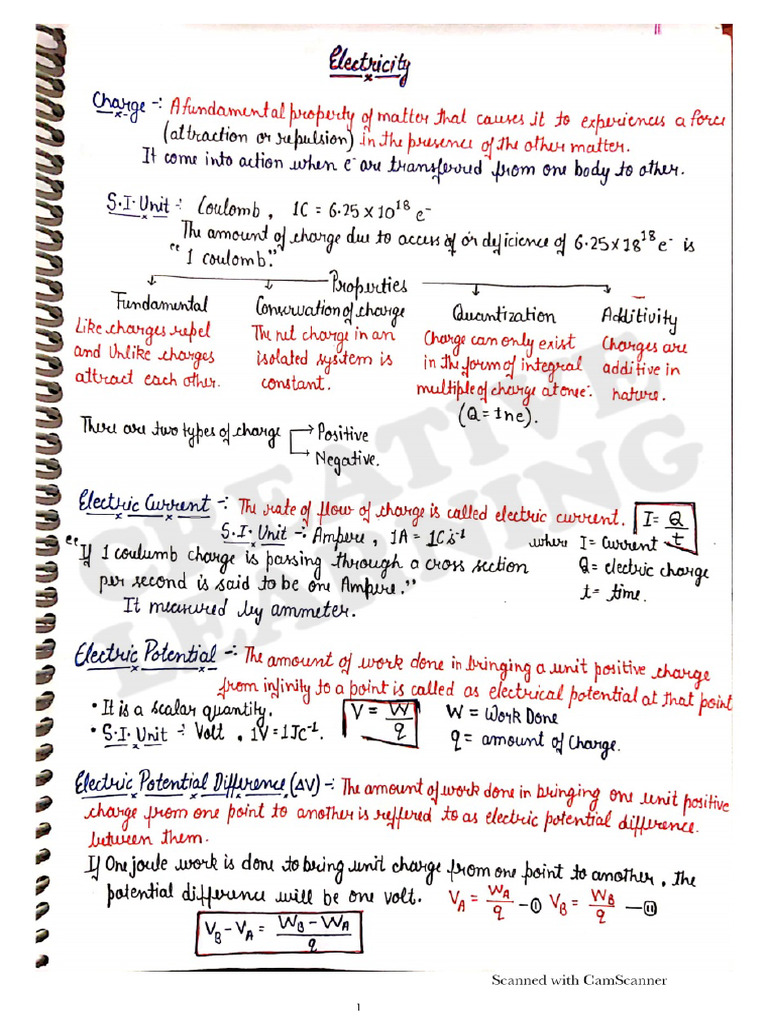 Electricity
Charge -: A fundamental property of matter that causes it to experiences a force
(attraction or repulsion) in the presence of the other matter.
It come into action when e⁻ are transferred from one body to other.
S.I. Unit : Coulomb , 1C = 6.25 x 10¹⁸ e⁻
The amount of charge due to access of or deficience of 6.25x18¹⁸ e⁻ is
"1 coulomb."
Properties
Fundamental Conservation of charge Quantization Additivity
Like charges repel The net charge in an Charge can only exist Charges are
and Unlike charges isolated system is in the form of integral additive in
attract each other. constant. multiple of charge at one. nature.
(Q = ±ne).
There are two types of charge → Positive
→ Negative.
Electric Current -: The rate of flow of charge is called electric current. I = Q/t
S.I. Unit -: Ampere , 1A = 1Cs⁻¹ where I = Current
"If 1 coulumb charge is passing through a cross section Q = electric charge
per second is said to be one Ampere." t = time.
It measured by ammeter.
Electric Potential -: The amount of work done in bringing a unit positive charge
from infinity to a point is called as electrical potential at that point
• It is a scalar quantity. V = W/q W = Work Done
• S.I. Unit -: Volt , 1V = 1JC⁻¹. q = amount of Charge.
Electric Potential Difference (ΔV) -: The amount of work done in bringing one unit positive
charge from one point to another is reffered to as electric potential difference
between them.
If One joule work is done to bring unit charge from one point to another , the
potential difference will be one volt. V_A = W_A/q —① V_B = W_B/q —⑪
V_B - V_A = W_B - W_A/q
CREATIVE
LEARNING
Scanned with CamScanner
1